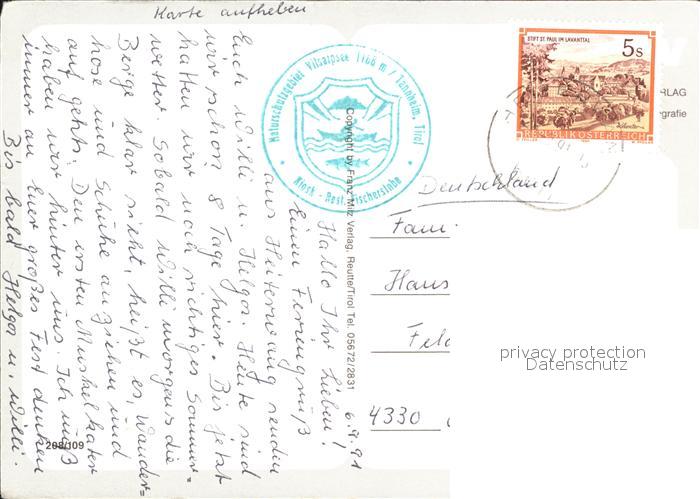 Karte aufheben
6.9.91
Hallo Ihr Lieben!
Einen Feriengruß
aus Heiterwang senden
Euch Willi u. Helga. Heute sind
wir schon 8 Tage hier. Bis jetzt
hatten wir noch richtiges Sommer=
wetter. Sobald Willi morgens die
Berge klar sieht, heißt es, Wander=
hose und Schuhe anziehen und
auf gehts. Den ersten Muskelkater
haben wir hinter uns. Ich muß
immer an Euer großes Fest denken
Bis bald Helga u. Willi.
Naturschutzgebiet Vilsalpsee 1168 m / Tannheim, Tirol
Kiosk - Rest. Fischerstube
Copyright by Franz Milz Verlag, Reutte/Tirol Tel. 05672/2831
208/109
STIFT ST. PAUL IM LAVANTTAL
5 S
REPUBLIK ÖSTERREICH
RLAG
grafie
Deutschland
Fam.
Hans
Feld
4330
privacy protection
Datenschutz